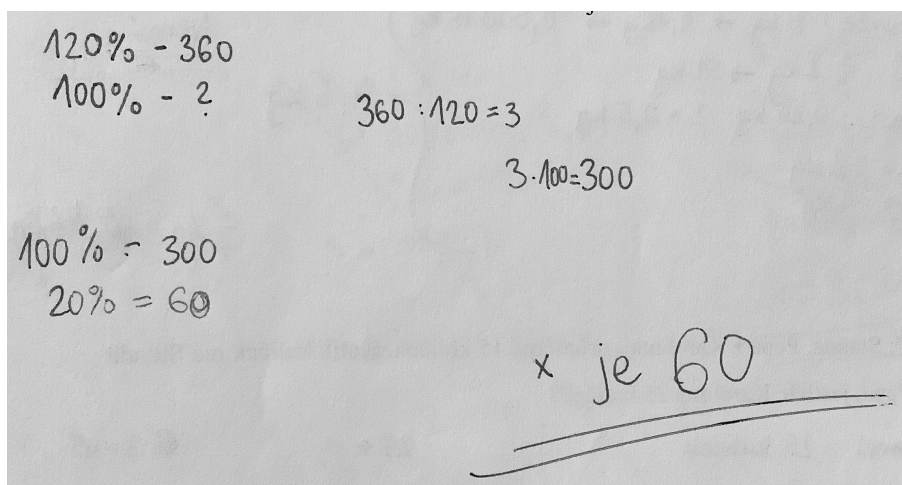 120% - 360
100% - ?
360 : 120 = 3
3 · 100 = 300
100% = 300
20% = 60
x je 60